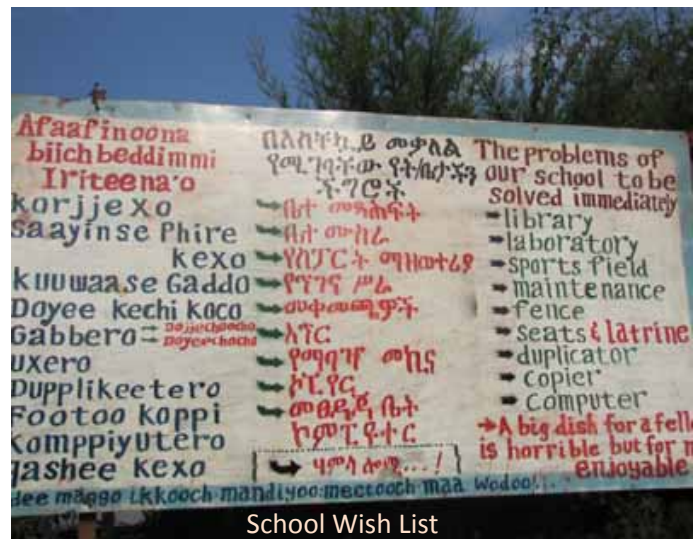 Afaafinoona
biichbeddimmi
Iriteena'o
karjjexo
saayinse Phire
kexo
kuuwaase Gaddo
Doyee kechi kaco
Gabbero
uxero
Dupplikeetero
Footoo koppi
komppiyutero
qashee kexo
በአስቸኳይ መቃለል
የሚገባቸው የት/ቤታችን
ችግሮች
ቤተ መጻሕፍት
ቤተ ሙከራ
የስፖርት ማዘወተሪያ
የጥገና ሥራ
መቀመጫዎች
አጥር
የማባዣ መኪና
ኮፒየር
መፀዳጃ ቤት
ኮምፒዩተር
The problems of
our school to be
solved immediately
➡library
➡laboratory
➡sports field
➡maintenance
➡fence
➡seats & latrine
➡duplicator
➡copier
➡computer
➔A big dish for a
is horrible but for
enjoyable
School Wish List